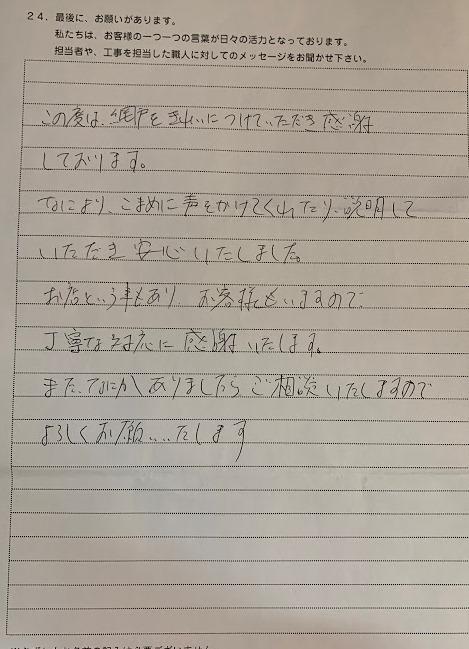 24．最後に、お願いがあります。
私たちは、お客様の一つ一つの言葉が日々の活力となっております。
担当者や、工事を担当した職人に対してのメッセージをお聞かせ下さい。
この度は、網戸をきれいにつけていただき感謝
しております。
なにより、こまめに声をかけてくれたり、説明して
いただき安心いたしました。
お店という事もあり お客様もいますので
丁寧な対応に感謝いたします。
また、なにかありましたらご相談いたしますので
よろしくお願いいたします